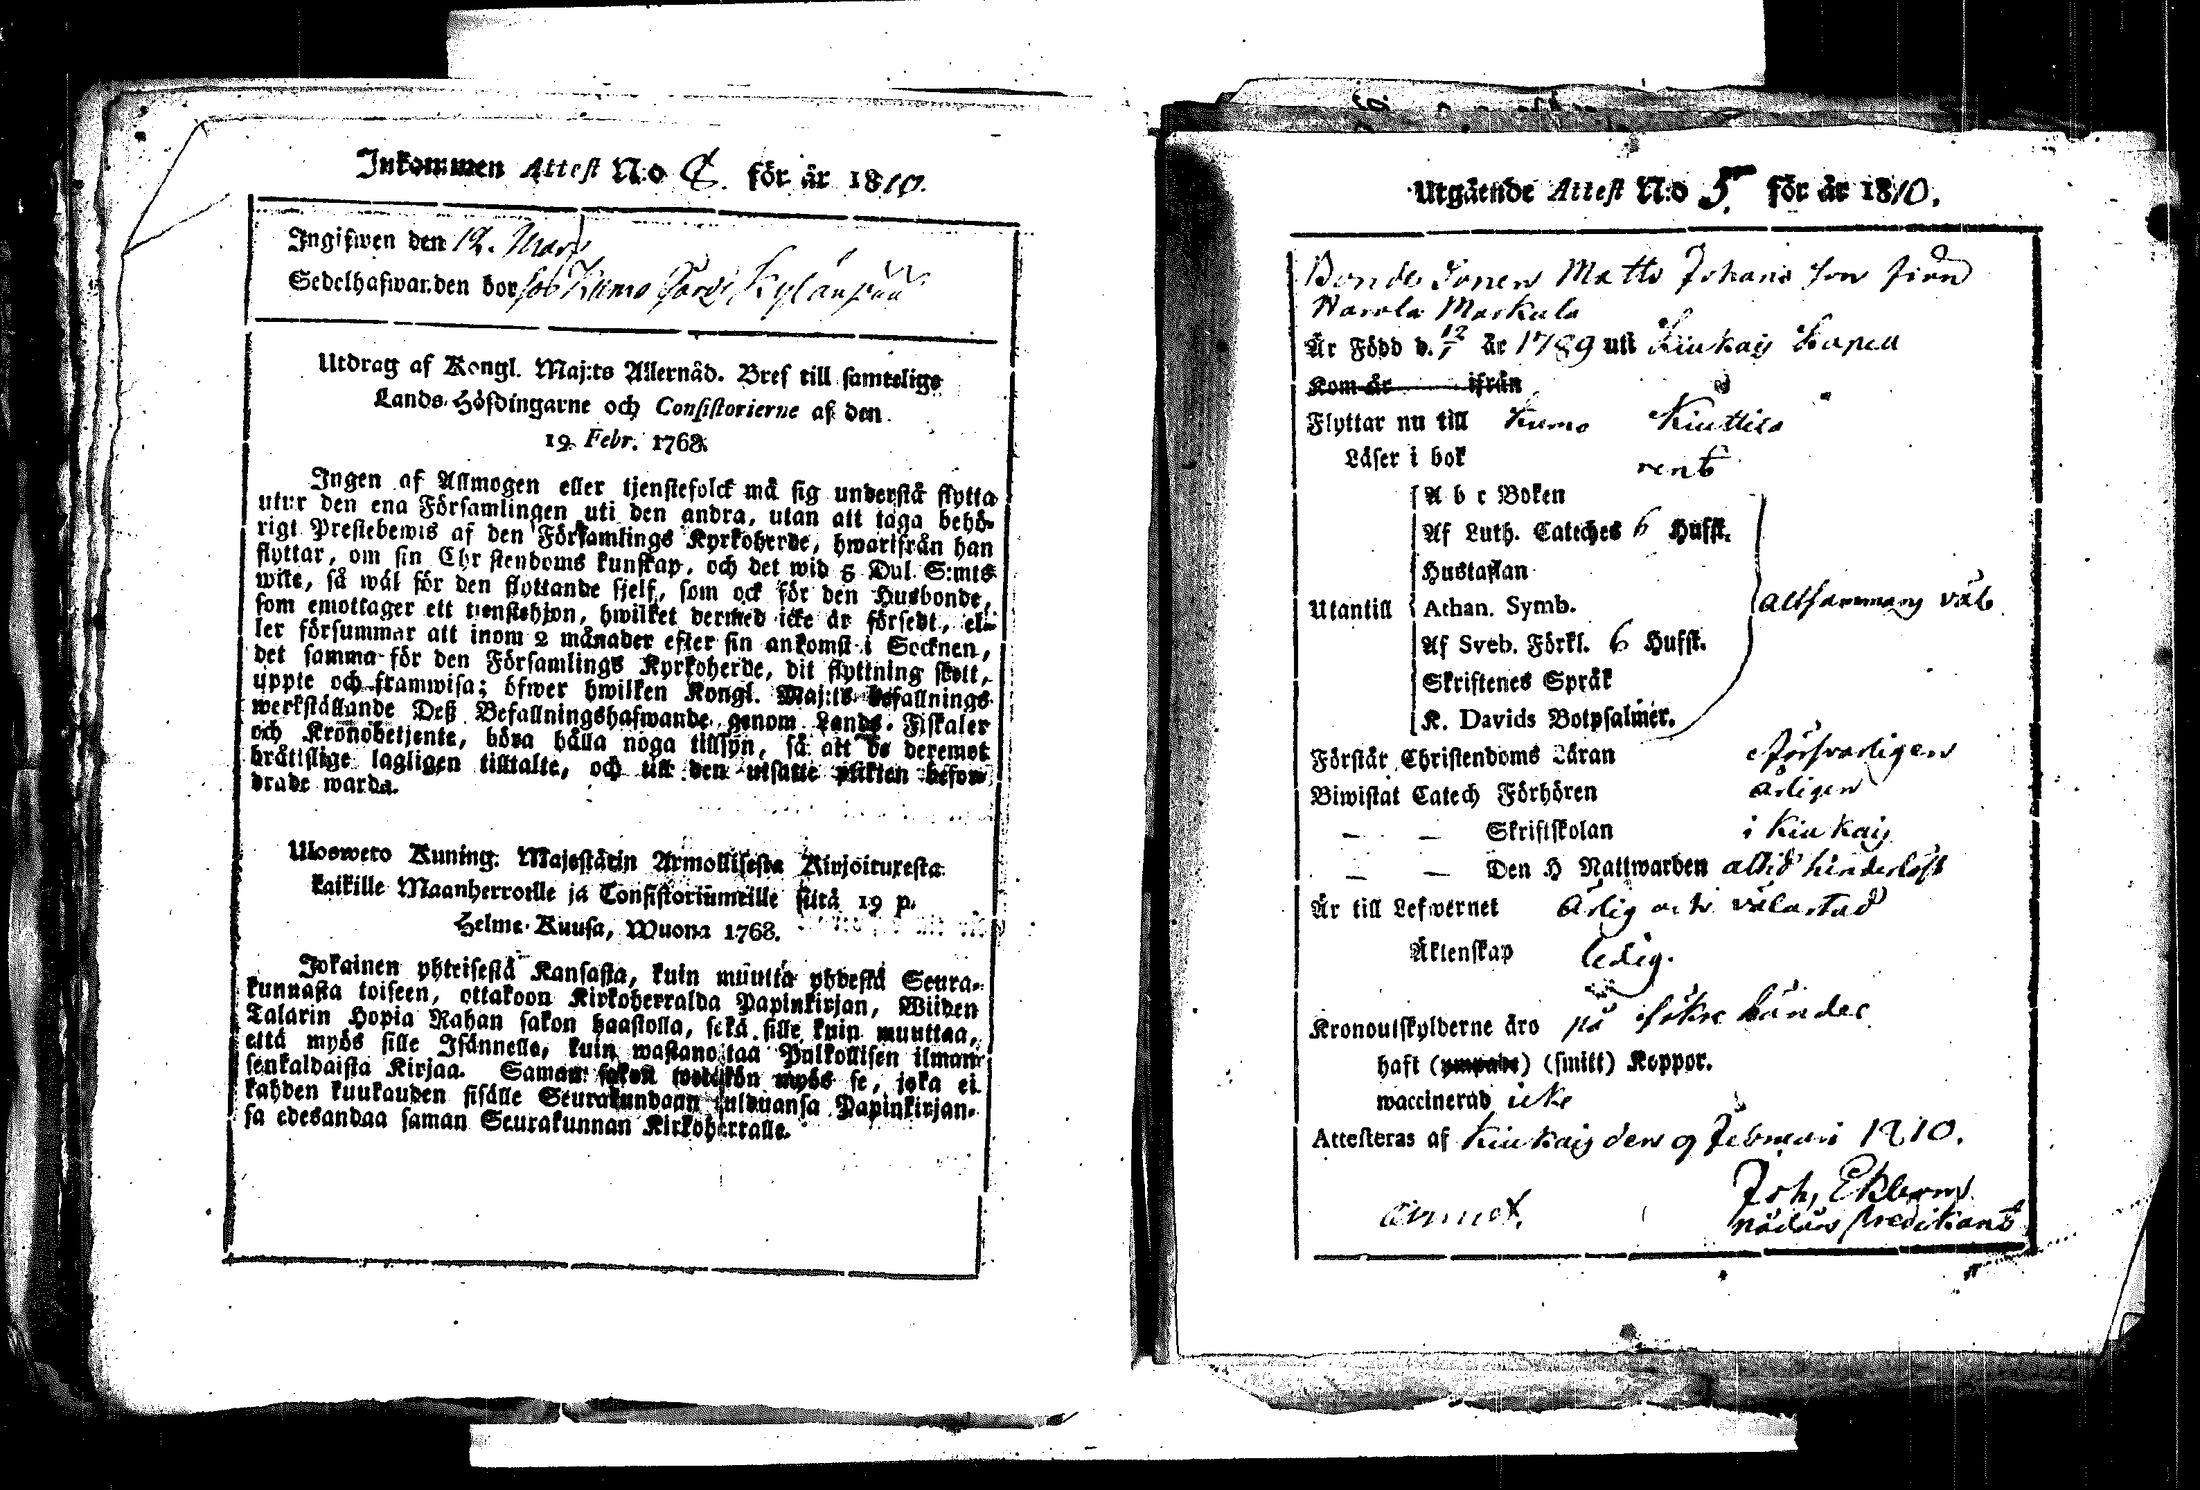 Inkommen Attest N:o 8. för år 1810.
Ingifwen den 12. Mars
Sedelhafwanden bor hos Kumo Kylänpää
Utdrag af Kongl. Maj:ts Allernåd. Bref till samtelige
Lands-Höfdingarne och Consistorierne af den
19 Febr. 1768.
Ingen af Allmogen eller tjenstefolck må sig understå flytta
utur den ena Församlingen uti den andra, utan att taga behö-
rigt Prestebewis af den Församlings Kyrkoherde, hwarifrån han
flyttar, om sin Christendoms kunskap, och det wid 5 Dal. S:mts
wite, så wäl för den flyttande sjelf, som ock för den Husbonde,
som emottager ett tienstehjon, hwilket dermed icke är försedt, el-
ler försummar att inom 2 månader efter sin ankomst i Socknen,
det samma för den Församlings Kyrkoherde, dit flyttning skett,
uppte och framwisa; öfwer hwilken Kongl. Maj:ts befallnings
werkställande Deß Befallningshafwande genom Lands-Fiskaler
och Kronobetjente, böra hålla noga tillsyn, så att de deremot
bråtislige lagligen tilltalte, och till den utsatte plikten befor-
drade warda.
Ulosweto Kuning. Majestätin Armollisesta Kirjoituxesta
kaikille Maanherroille ja Consistoriumeille siitä 19 p.
Helme-Kuusa, Wuona 1768.
Jokainen yhteisestä Kansasta, kuin muutta yhdestä Seura-
kunnasta toiseen, ottakoon Kirkoherralda Papinkirjan, Wiiden
Talarin Hopia Rahan sakon haastolla, sekä sille kuin muuttaa,
että myös sille Isännelle, kuin wastanottaa Palkollisen ilman
senkaldaista Kirjaa. Saman sakon wetäkön myös se, joka ei
kahden kuukauden sisälle Seurakundaan tulduansa Papinkirjan-
sa edesandaa saman Seurakunnan Kirkoherralle.
Utgående Attest N:o 5. för år 1810.
Bonde Sonen Matts Johans son från
Narvla Markula
Är Född d. 12/1 år 1789 uti Kiukais Kapell
Kom år ifrån
Flyttar nu till Kumo Kiuttila
Läser i bok rent
A b c Boken
Af Luth. Cateches 6 Hufst.
Hustaflan
Utantill Athan. Symb. altsammans väl
Af Sveb. Förkl. 6 Hufst.
Skriftenes Språk
K. Davids Botpsalmer.
Förstår Christendoms Läran försvarligen
Biwistat Catech Förhören årligen
— — Skriftskolan i Kiukais
— — Den H Nattwarden altid hinderlöst
Är till Lefwernet Ärlig och välartad
Äktenskap ledig.
Kronoutskylderne äro på säkre händer
haft (ympade) (smitt) Koppor.
waccinerad icke
Attesteras af Kiukais den 9 Februari 1810.
Joh. Ekbom
nådårs predikant